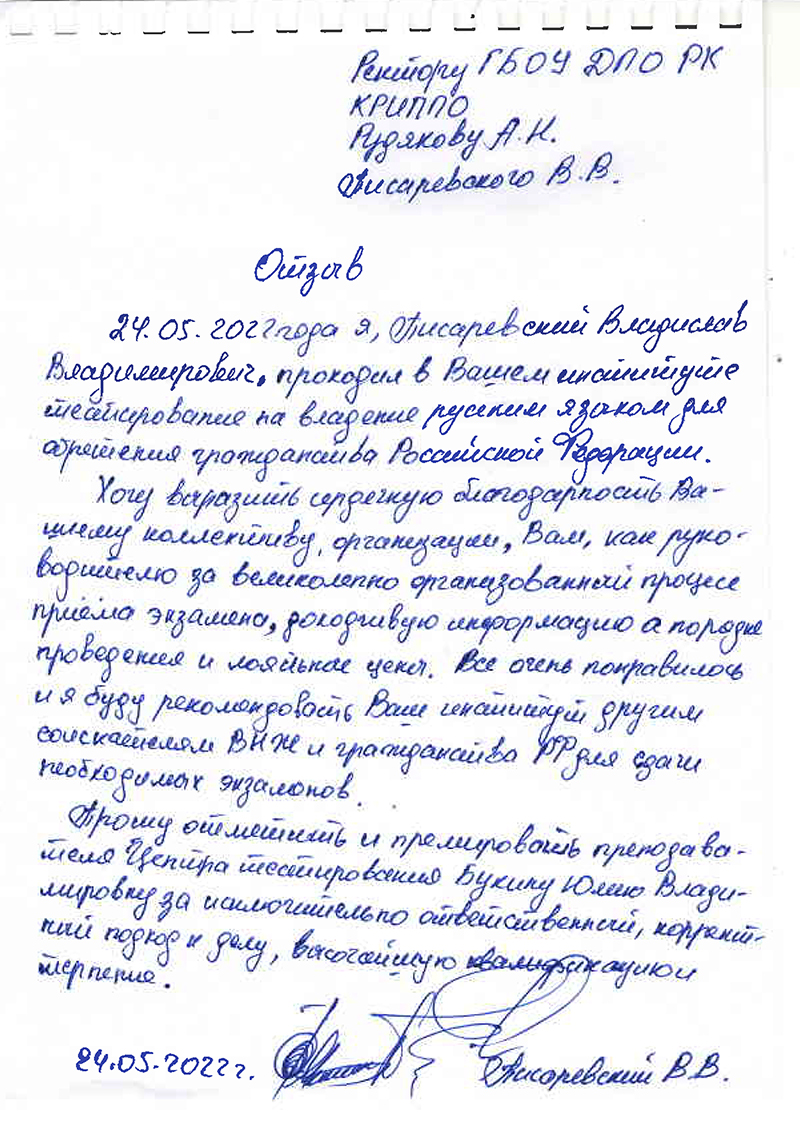 Ректору ГБОУ ДПО РК
КРИППО
Рудякову А.Н.
Писаревского В.В.
Отзыв
24.05.2022 года я, Писаревский Владислав
Владимирович, проходил в Вашем институте
тестирование на владение русским языком для
обретения гражданства Российской Федерации.
Хочу выразить сердечную благодарность Ва-
шему коллективу, организации, Вам, как руко-
водителю за великолепно организованный процесс
приёма экзамена, доходчивую информацию о порядке
проведения и лояльные цены. Все очень понравилось
и я буду рекомендовать Ваш институт другим
соискателям ВНЖ и гражданства РФ для сдачи
необходимых экзаменов.
Прошу отметить и премировать преподава-
теля Центра тестирования Букину Юлию Влади-
мировну за исключительно ответственный, коррект-
ный подход к делу, высочайшую квалификацию и
терпение.
24.05.2022 г.
Писаревский В.В.